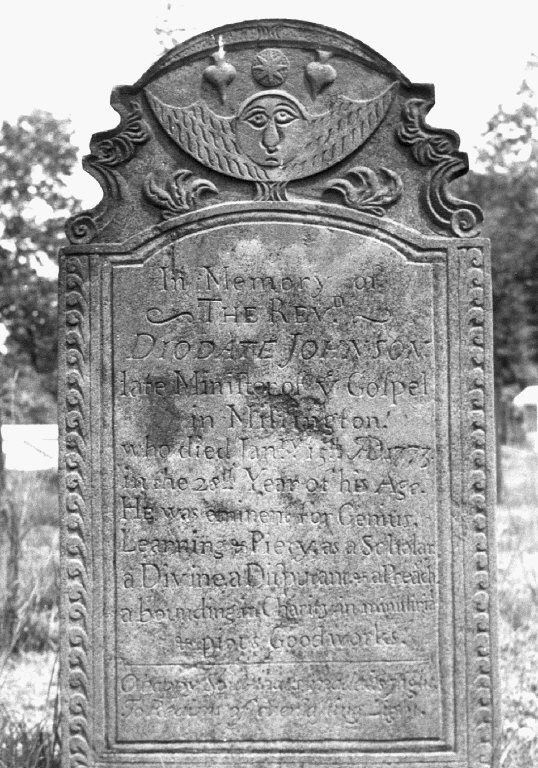 In Memory of
THE REVᴰ.
DIODATE JOHNSON
late Miniſter of yᵉ Goſpel
in Millington.
who died Janʸ. 15ᵗʰ AD 1773
in the 28ᵗʰ Year of his Age.
He was eminent for Genius,
Learning & Piety; as a Scholar
a Divine, a Diſputant & a Preach
abounding in Charity, in
pious Good works.
O happy
To